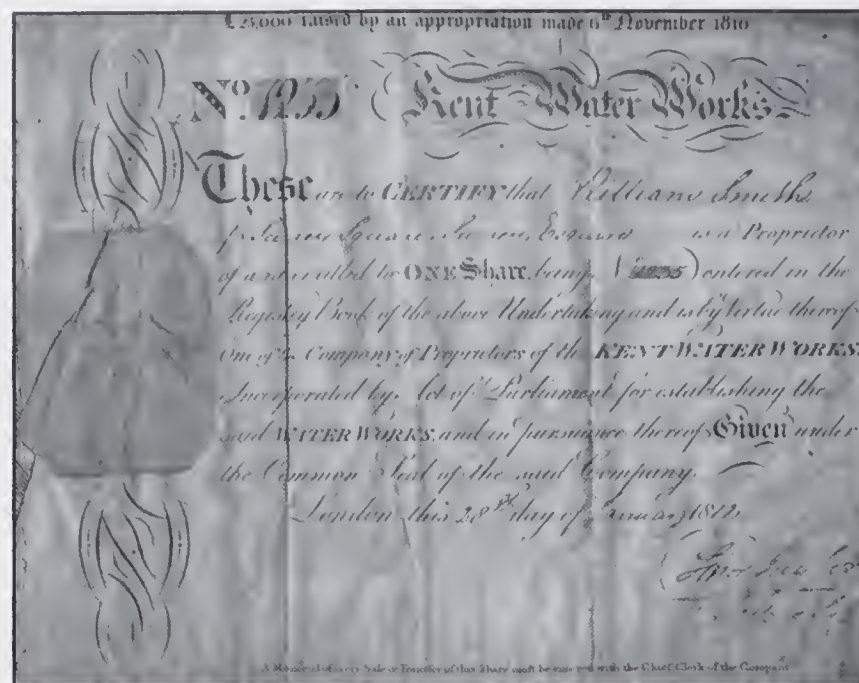 £25,000 raised by an appropriation made 6th November 1810
No. 1255 Kent Water Works
These are to CERTIFY that William Smith
James Square is a Proprietor
of and entitled to ONE Share, being No. 1255 entered in the
Registry Book of the above Undertaking and is by Virtue thereof
One of the Company of Proprietors of the KENT WATER WORKS,
Incorporated by Act of Parliament for establishing the
said WATER WORKS, and in pursuance thereof Given under
the Common Seal of the said Company.
London this 28th day of January 1812
A Memorial of every Sale or Transfer of this Share must be entered with the Chief Clerk of the Company